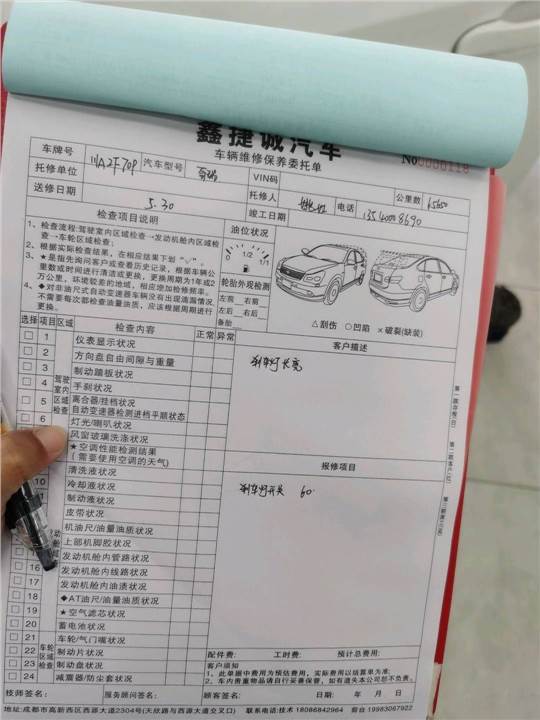 鑫捷诚汽车
车辆维修保养委托单
No0000118
车牌号 川A2F70P 汽车型号 VIN码
托修单位 托修人 电话 公里数
送修日期 5.30 竣工日期
检查项目说明
1、检查流程:驾驶室内区域检查→发动机舱内区域检查→车轮区域检查;
2、根据实际检查结果,在相应结果下划“√”。
3、★是指先询问客户或查看历史记录,根据车辆公里数或时间进行清洁或更换,更换周期为1年或2万公里,环境较差的地域,相应增加检修频率。
4、◆对非油尺式自动变速器车辆没有出现渗漏情况不需要每次都检查油量油质,应该根据周期进行更换。
油位状况
0 1/2 1/1
轮胎外观检测
左前 右前
左后 右后
备胎
△刮伤 ○凹陷 ×破裂(缺装)
选择 项目 区域 检查内容 正常 异常
驾驶室内区域检查
1 仪表显示状况
2 方向盘自由间隙与重量
3 制动踏板状况
4 手刹状况
5 离合器/挂档状况
自动变速器检测进档平顺状态
6 灯光/喇叭状况
风窗玻璃洗涤状况
★空调性能检测结果
(需要使用空调的天气)
清洗液状况
10 冷却液状况
制动液状况
皮带状况
机油尺/油量油质状况
上部机脚胶状况
发动机舱内管路状况
16 发动机舱内线路状况
17 发动机舱内油渍状况
18 ◆AT油尺/油量油质状况
19 ★空气滤芯状况
20 蓄电池状况
车轮区域检查
21 车轮/气门嘴状况
22 制动片状况
23 制动盘状况
24 减震器/防尘套状况
客户描述
刹车灯长亮
报修项目
刹车灯开关 60
配件费: 工时费: 预计总费用:
客户须知
1、此单据中费用为预估费用,实际费用以结算单为准;
2、车内贵重物品请自行妥善保管,如有遗失本公司恕不负责。
技师签名: 服务顾问签名: 顾客签名: 日期: 年 月 日
地址:成都市高新西区西源大道2304号(天欣路与西源大道交叉口) 联系电话:技术 18086842964 前台 19983067922